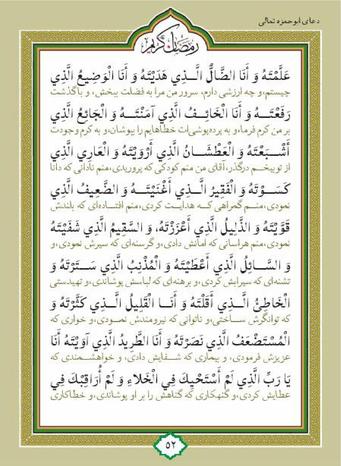 دعای ابوحمزه ثمالی
رمضان کریم
عَلَّمْتَهُ وَ أَنَا الضَّالُّ الَّذِي هَدَيْتَهُ وَ أَنَا الْوَضِيعُ الَّذِي
چیستم،و چه ارزشی دارم، سرور من مرا به فضلت ببخش، و باگذشت
رَفَعْتَهُ وَ أَنَا الْخَائِفُ الَّذِي آمَنْتَهُ وَ الْجَائِعُ الَّذِي
بر من کرم فرما، و به پرده‌پوشی‌ات خطاهایم را بپوشان،و به کرم وجودت
أَشْبَعْتَهُ وَ الْعَطْشَانُ الَّذِي أَرْوَيْتَهُ وَ الْعَارِي الَّذِي
از توبیخم درگذر، آقای من منم کودکی که پروریدی،منم نادانی که دانا
كَسَوْتَهُ وَ الْفَقِيرُ الَّذِي أَغْنَيْتَهُ وَ الضَّعِيفُ الَّذِي
نمودی،منم گمراهی که هدایت کردی،منم افتاده‌ای که بلندش
قَوَّيْتَهُ وَ الذَّلِيلُ الَّذِي أَعْزَزْتَهُ، وَ السَّقِيمُ الَّذِي شَفَيْتَهُ
نمودی،منم هراسانی که امانش دادی،و گرسنه‌ای که سیرش نمودی،و
وَ السَّائِلُ الَّذِي أَعْطَيْتَهُ وَ الْمُذْنِبُ الَّذِي سَتَرْتَهُ وَ
تشنه‌ای که سیرابش کردی،و برهنه‌ای که لباسش پوشاندی،و تهیدستی
الْخَاطِئُ الَّذِي أَقَلْتَهُ وَ أَنَا الْقَلِيلُ الَّذِي كَثَّرْتَهُ وَ
که توانگرش ساختی،و ناتوانی که نیرومندش نمودی،و خواری که
الْمُسْتَضْعَفُ الَّذِي نَصَرْتَهُ وَ أَنَا الطَّرِيدُ الَّذِي آوَيْتَهُ أَنَا
عزیزش فرمودی، و بیماری که شفایش دادی، و خواهشمندی که
يَا رَبِّ الَّذِي لَمْ أَسْتَحْيِكَ فِي الْخَلَاءِ وَ لَمْ أُرَاقِبْكَ فِي
عطایش کردی،و گنهکاری که گناهش را بر او پوشاندی، و خطاکاری
۵۲